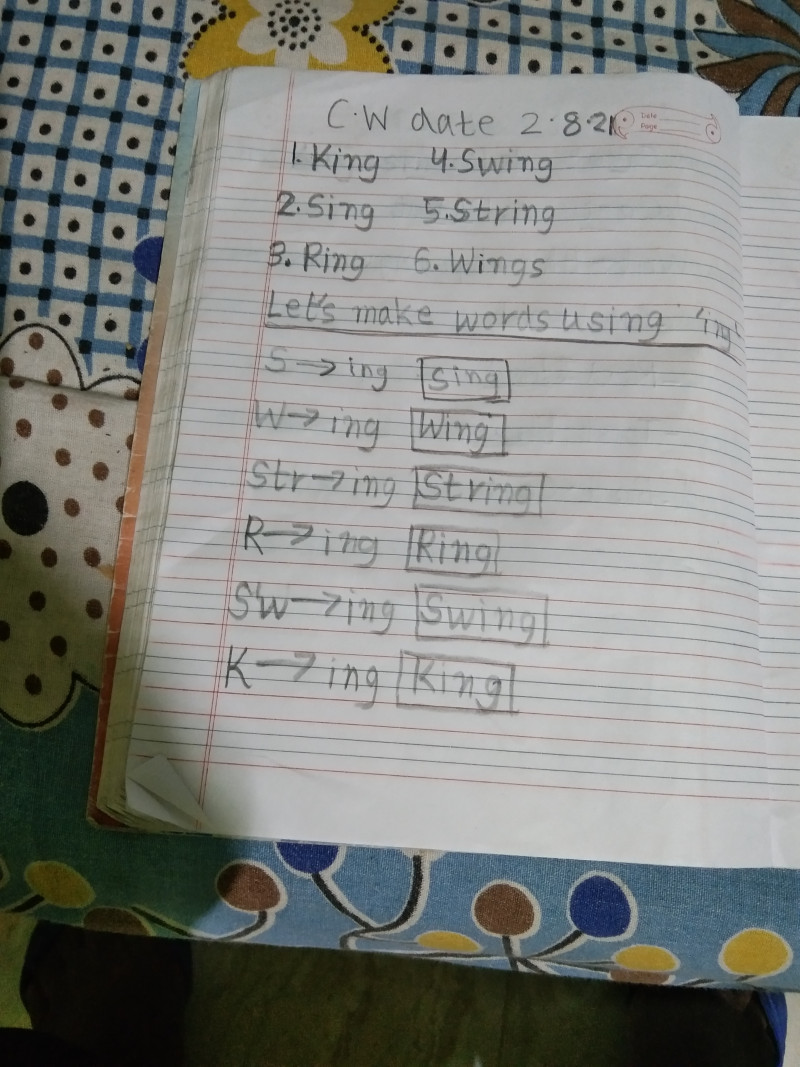 C.W date 2.8.21
Date
Page
1. King 4. Swing
2. Sing 5. String
3. Ring 6. Wings
Let's make words using 'ing'
S → ing Sing
W → ing Wing
Str → ing String
R → ing Ring
Sw → ing Swing
K → ing King